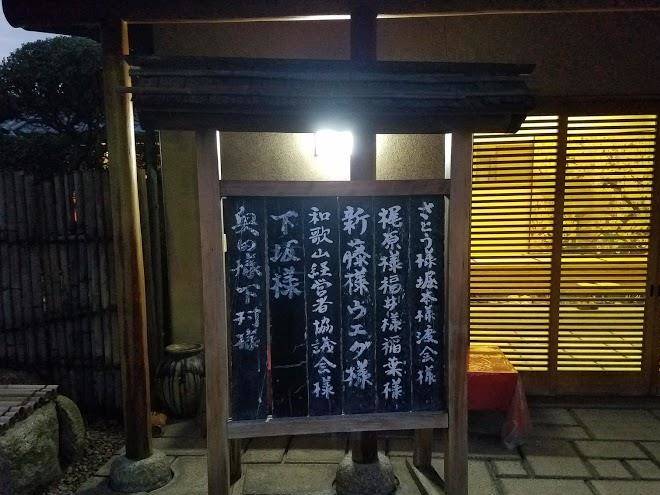 さとう様 堀本様 渡会様
梶原様 福井様 稲葉様
新藤様 ウエダ様
和歌山経営者協議会様
下坂様
奥田様 下村様